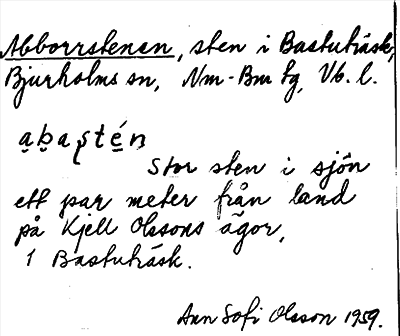 Abborrstenen, sten i Bastuträsk,
Bjurholms sn, Nm-Bm tg, Vb. l.
a̤ḅaʂtén
Stor sten i sjön
ett par meter från land
på Kjell Olssons ägor,
1 Bastuträsk.
Ann Sofi Olsson 1959.